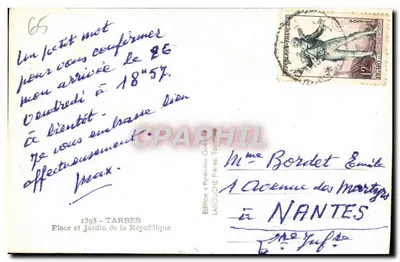 65
Un petit mot
pour vous confirmer
mon arrivée le 26
Vendredi à 18h57.
à bientôt.
Je vous embrasse bien
affectueusement.
Max.
1895 - TARBES
Place et Jardin de la République
LABOUCHE Frères, Toulouse
CPARHI
Mme Bordet Emile
1 Avenue des Martyrs
à NANTES
Lre Infre